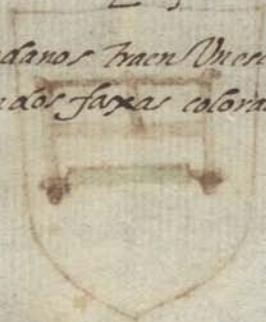 danos traen Un esc
dos faxas colora